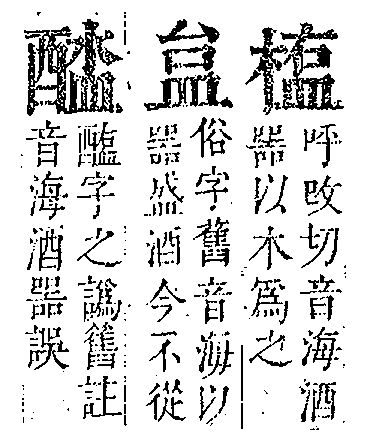 呼改切音海酒
器以木爲之
俗字舊音海以
器盛酒今不從
醢字之譌舊註
音海酒器誤